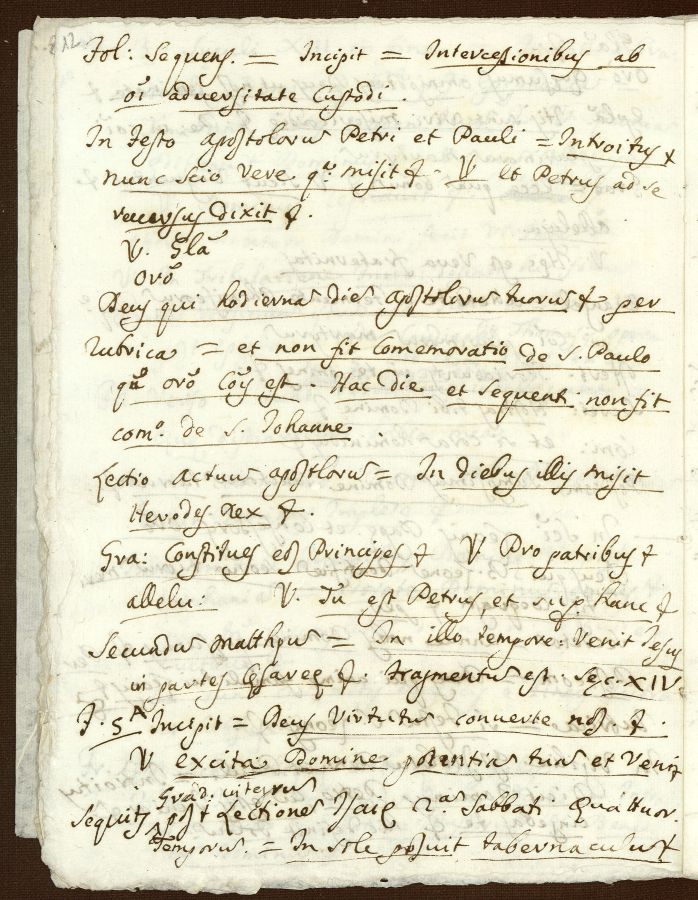 Fol: Sequens. = Incipit = Intercessionibus ab
oi͂ adversitate Custodi
In Festo apostolorum Petri et Pauli = Introitus &
nunc scio vere qr͂ misit &. V et Petrus ad se
reversus dixit &.
V. Glã
Orõ
Deus qui hodierna die apostolorum tuorum & per
rubrica = et non fit Comemoratio de S. Paulo
qr͂ orõ Coi͂s est. Hac Die et sequenti non fit
comº. de S. Iohanne.
Lectio actuum apostlorum = In diebus illis misit
Herodes Rex &.
Gra: Constitues eos Principes & V Pro patribus &
allelu: V. Tu est Petrus et sup hanc &
Secundum Matthęum = In illo tempore: Venit Jesus
in partes Cęsareę &: fragmentum est sęc. XIV.
F. 5ᴬ Incipit = Deus Virtutum converte nos &.
V excita Domine potentiam tuam et Veni
Grad: integrum
Sequitʒ post Lectionem Isaię 2.ᵃᵐ Sabbati Quattuor.
Temporum. = In sole posuit tabernaculum &